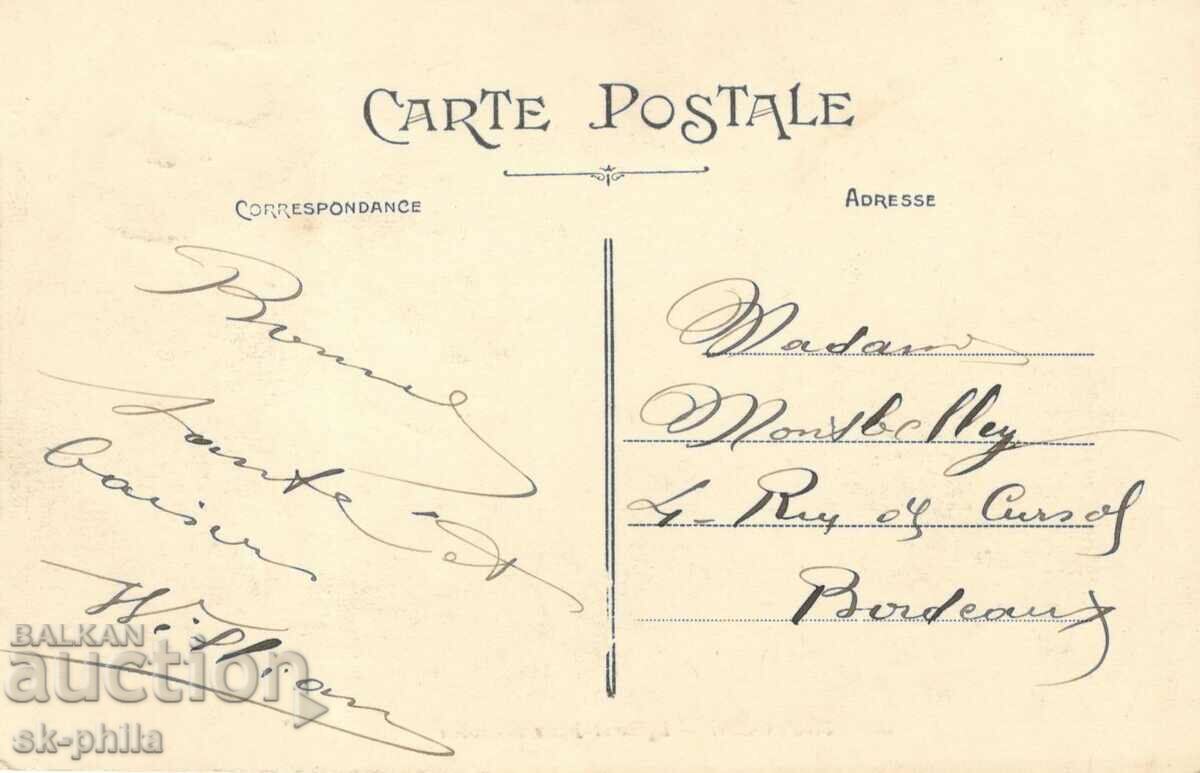 CARTE POSTALE
CORRESPONDANCE
ADRESSE
Bonne
Santé et
baiser
William
Madame
4 - Rue de Cursol
Bordeaux
BALKAN
auction
sk-phila